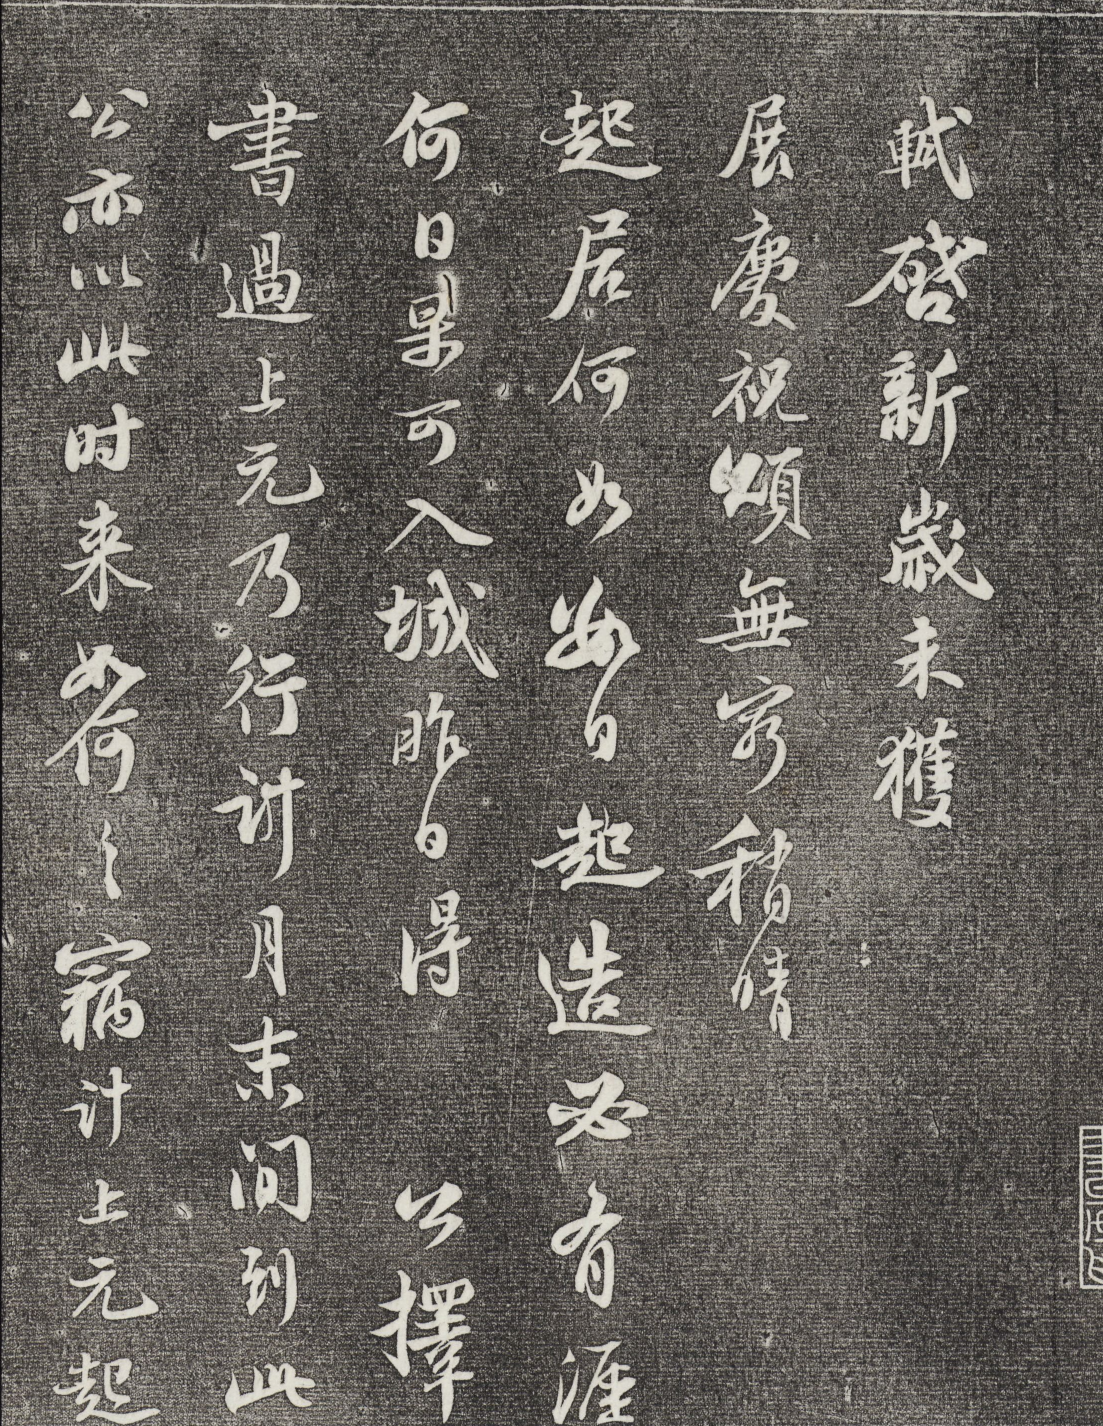 軾啓新歲未獲
展慶祝頌無窮稍晴
起居何如數日起造必有涯
何日果可入城昨日得 公擇
書過上元乃行計月末間到此
公亦以此时来如何〻竊計上元起